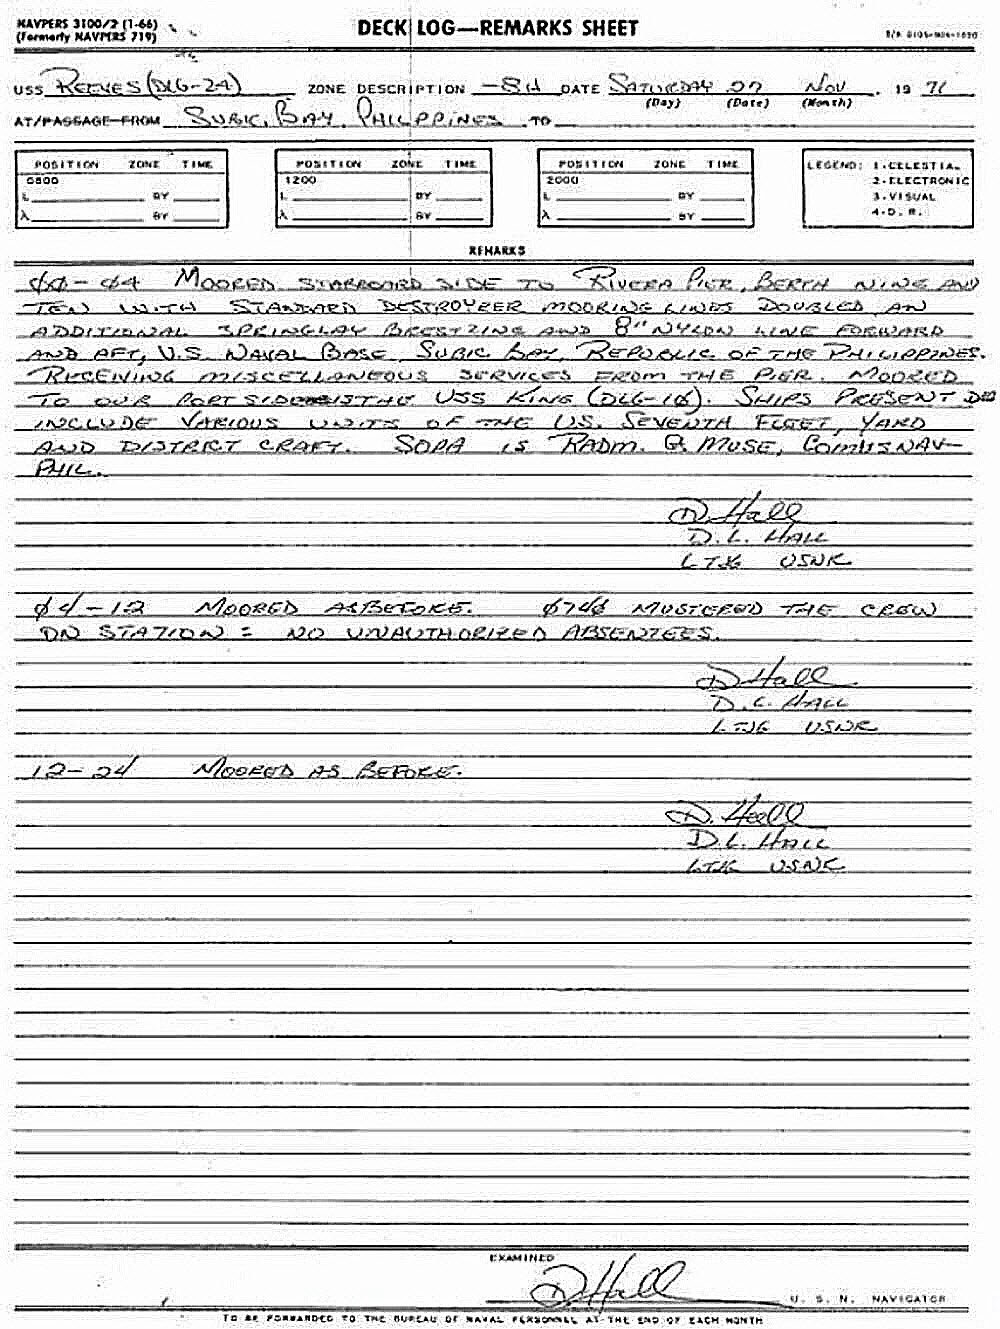 NAVPERS 3100/2 (1-66)
(Formerly NAVPERS 719)
DECK LOG—REMARKS SHEET
USS REEVES (DLG-24) ZONE DESCRIPTION -8H DATE SATURDAY 27 NOV. 1971
(Day) (Date) (Month)
AT/PASSAGE FROM SUBIC, BAY, PHILPPINES TO
POSITION ZONE TIME
0800
L BY
λ BY
POSITION ZONE TIME
1200
L BY
λ BY
POSITION ZONE TIME
2000
L BY
λ BY
LEGEND: 1-CELESTIAL
2-ELECTRONIC
3-VISUAL
4-D. R.
REMARKS
ØØ-Ø4 MOORED STARBOARD SIDE TO RIVERA PIER, BERTH NINE AND
TEN WITH STANDARD DESTROYER MOORING LINES DOUBLED, AN
ADDITIONAL SPRINGLAY BRESTLINE AND 8" NYLON LINE FORWARD
AND AFT, U.S. NAVAL BASE, SUBIC BAY, REPUBLIC OF THE PHILIPPINES.
RECEIVING MISCELLANEOUS SERVICES FROM THE PIER. MOORED
TO OUR PORT SIDE IS THE USS KING (DLG-10). SHIPS PRESENT
INCLUDE VARIOUS UNITS OF THE U.S. SEVENTH FLEET, YARD
AND DISTRICT CRAFT. SOPA IS RADM. G. MUSE, COMUSNAV-
PHIL.
D. Hall
D. L. HALL
LTJG USNR
Ø4-12 MOORED AS BEFORE. Ø74Ø MUSTERED THE CREW
ON STATION: NO UNAUTHORIZED ABSENTEES.
D Hall
D. L. HALL
LTJG USNR
12-24 MOORED AS BEFORE.
D. Hall
D. L. HALL
LTJG USNR
EXAMINED
D Hall
U. S. N. NAVIGATOR
TO BE FORWARDED TO THE BUREAU OF NAVAL PERSONNEL AT THE END OF EACH MONTH